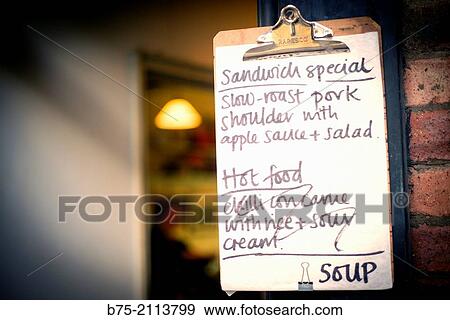 RAPESCO
Sandwich special
slow-roast pork
shoulder with
apple sauce + salad.
Hot food
chilli con carne
with rice + sour
cream.
SOUP
FOTOSEARCH
b75-2113799 www.fotosearch.com